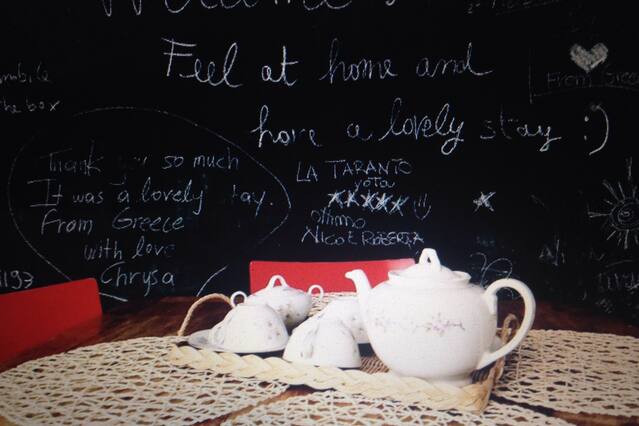 Welcome
Feel at home and
have a lovely stay :)
the box
Thank you so much
It was a lovely stay.
From Greece
with love
Chrysa
LA TARANTO
vota
ottimo
NICO E ROBERTA
From